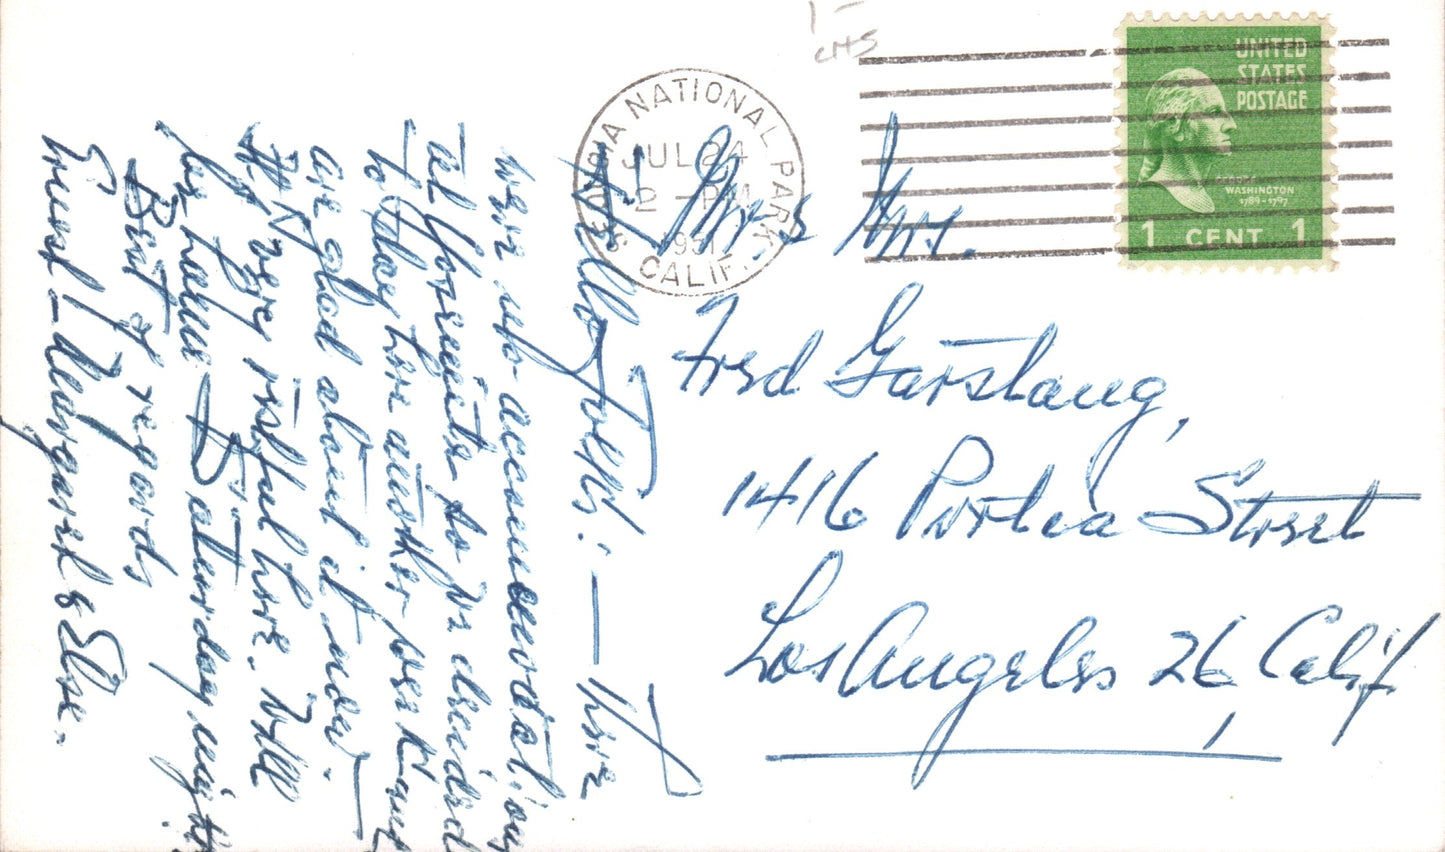 1—
cts
SEQUOIA NATIONAL PARK
JUL 24
2 - PM
195
CALIF.
UNITED
STATES
POSTAGE
GEORGE
WASHINGTON
1789-1797
1 CENT 1
Mr. & Mrs.
Fred Garstang,
1416 Portia Street
Los Angeles 26, Calif
Hello Folks: — There
were no accommodations
at Yosemite so we decided
to stay here another week and
are glad about it now.
It is very restful here. Will
be home Saturday night.
Best of regards,
Ernest - Margaret & Elsie.